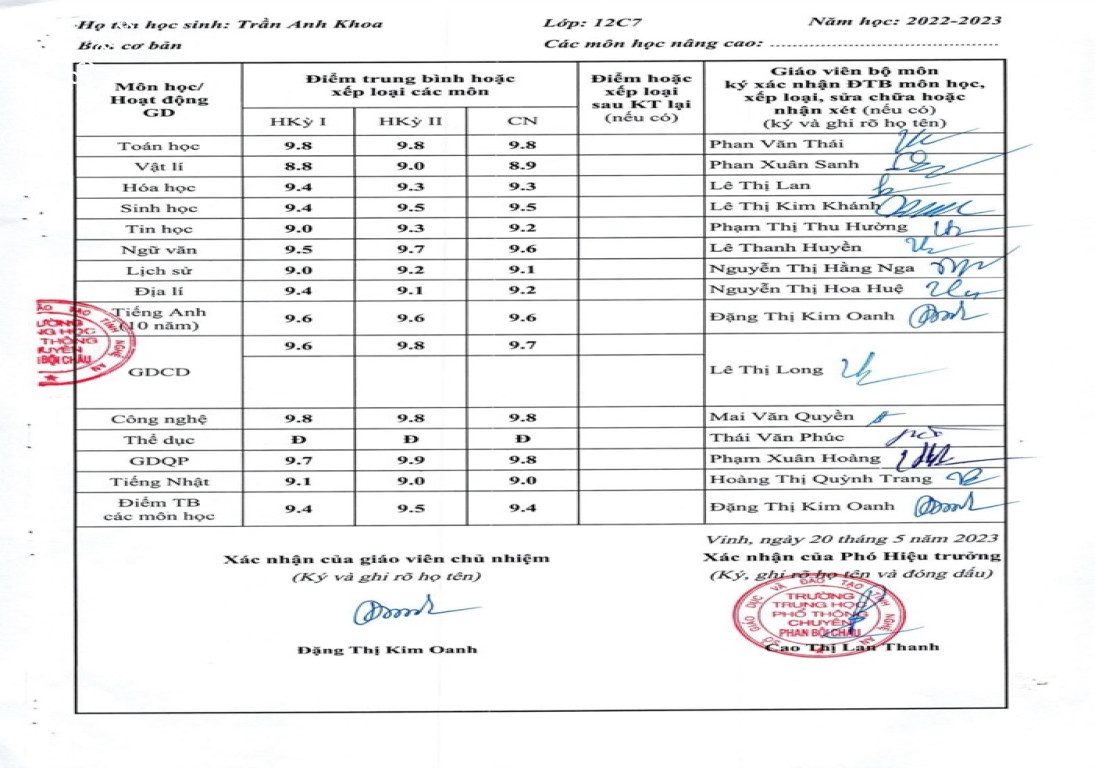 Họ tên học sinh: Trần Anh Khoa Lớp: 12C7 Năm học: 2022-2023
Ban cơ bản Các môn học nâng cao: ........................................
Môn học/
Hoạt động
GD
Điểm trung bình hoặc
xếp loại các môn
HKỳ I HKỳ II CN
Điểm hoặc
xếp loại
sau KT lại
(nếu có)
Giáo viên bộ môn
ký xác nhận ĐTB môn học,
xếp loại, sửa chữa hoặc
nhận xét (nếu có)
(ký và ghi rõ họ tên)
Toán học 9.8 9.8 9.8 Phan Văn Thái
Vật lí 8.8 9.0 8.9 Phan Xuân Sanh
Hóa học 9.4 9.3 9.3 Lê Thị Lan
Sinh học 9.4 9.5 9.5 Lê Thị Kim Khánh
Tin học 9.0 9.3 9.2 Phạm Thị Thu Hường
Ngữ văn 9.5 9.7 9.6 Lê Thanh Huyền
Lịch sử 9.0 9.2 9.1 Nguyễn Thị Hằng Nga
Địa lí 9.4 9.1 9.2 Nguyễn Thị Hoa Huệ
Tiếng Anh
(10 năm) 9.6 9.6 9.6 Đặng Thị Kim Oanh
GDCD 9.6 9.8 9.7 Lê Thị Long
Công nghệ 9.8 9.8 9.8 Mai Văn Quyền
Thể dục Đ Đ Đ Thái Văn Phúc
GDQP 9.7 9.9 9.8 Phạm Xuân Hoàng
Tiếng Nhật 9.1 9.0 9.0 Hoàng Thị Quỳnh Trang
Điểm TB
các môn học 9.4 9.5 9.4 Đặng Thị Kim Oanh
Vinh, ngày 20 tháng 5 năm 2023
Xác nhận của giáo viên chủ nhiệm
(Ký và ghi rõ họ tên)
Đặng Thị Kim Oanh
Xác nhận của Phó Hiệu trưởng
(Ký, ghi rõ họ tên và đóng dấu)
SỞ GIÁO DỤC VÀ ĐÀO TẠO TỈNH NGHỆ AN
TRƯỜNG
TRUNG HỌC
PHỔ THÔNG
CHUYÊN
PHAN BỘI CHÂU
Cao Thị Lan Thanh